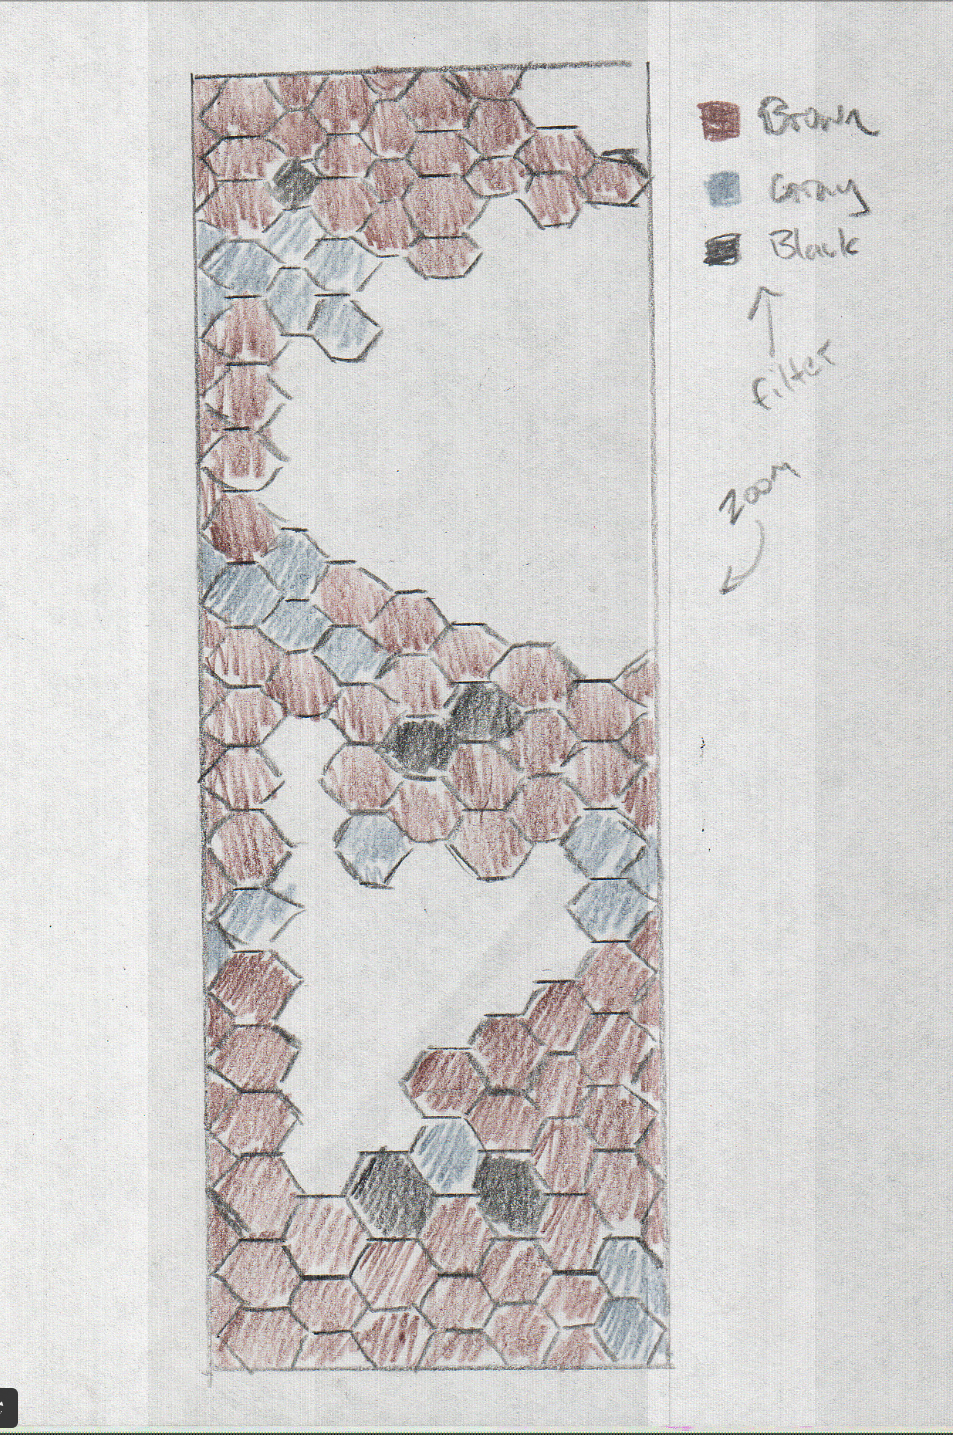 Brown
Gray
Black
filter
zoom